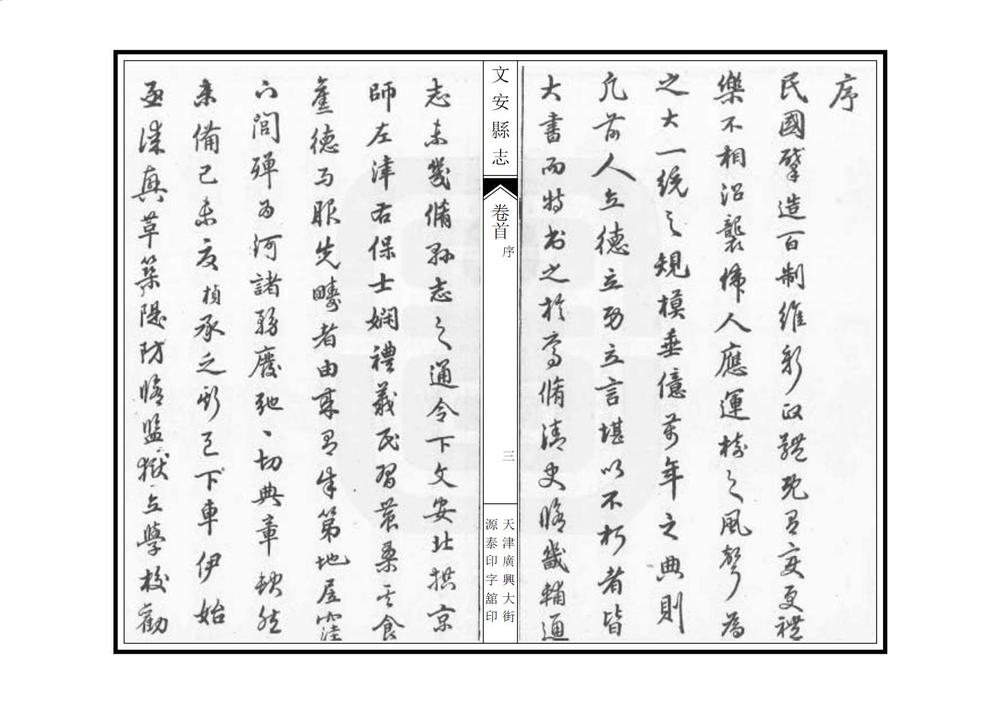 序
民國肇造百制維新政體既有變更禮
樂不相沿襲偉人應運樹之風聲為
之大一統之規模垂億萬年之典則
凡前人立德立功立言堪以不朽者皆
大書而特書之於焉脩清史脩畿輔通
文安縣志
卷首
序
三
天津廣興大街
源泰印字舘印
志未幾脩縣志之通令下文安北拱京
師左津右保士嫻禮義民習農桑其食
舊德而服先疇者由來有年第地居窪
下閭殫為河諸務廢弛一切典章缺然
未備己未夏楨承乏斯邑下車伊始
亟謀興革築隄防脩監獄立學校勸